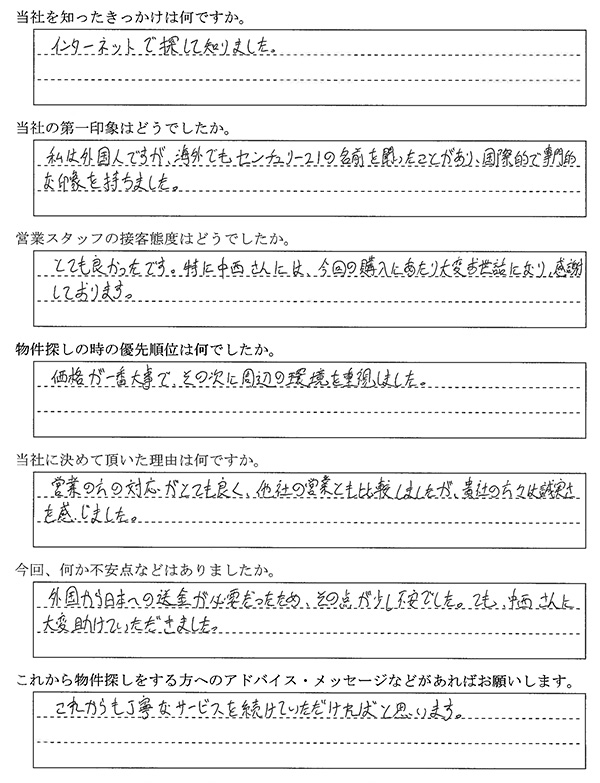 当社を知ったきっかけは何ですか。
インターネットで探して知りました。
当社の第一印象はどうでしたか。
私は外国人ですが、海外でもセンチュリー21の名前を聞ったことがあり、国際的で専門的
な印象を持ちました。
営業スタッフの接客態度はどうでしたか。
とても良かったです。特に中西さんには、今回の購入にあたり大変お世話になり、感謝
しております。
物件探しの時の優先順位は何でしたか。
価格が一番大事で、その次に周辺の環境を重視しました。
当社に決めて頂いた理由は何ですか。
営業の方の対応がとても良く、他社の営業とも比較しましたが、貴社の方々は誠実さ
を感じました。
今回、何か不安点などはありましたか。
外国から日本への送金が必要だったため、その点が少し不安でした。でも、中西さんに
大変助けていただきました。
これから物件探しをする方へのアドバイス・メッセージなどがあればお願いします。
これからも丁寧なサービスを続けていただければと思います。